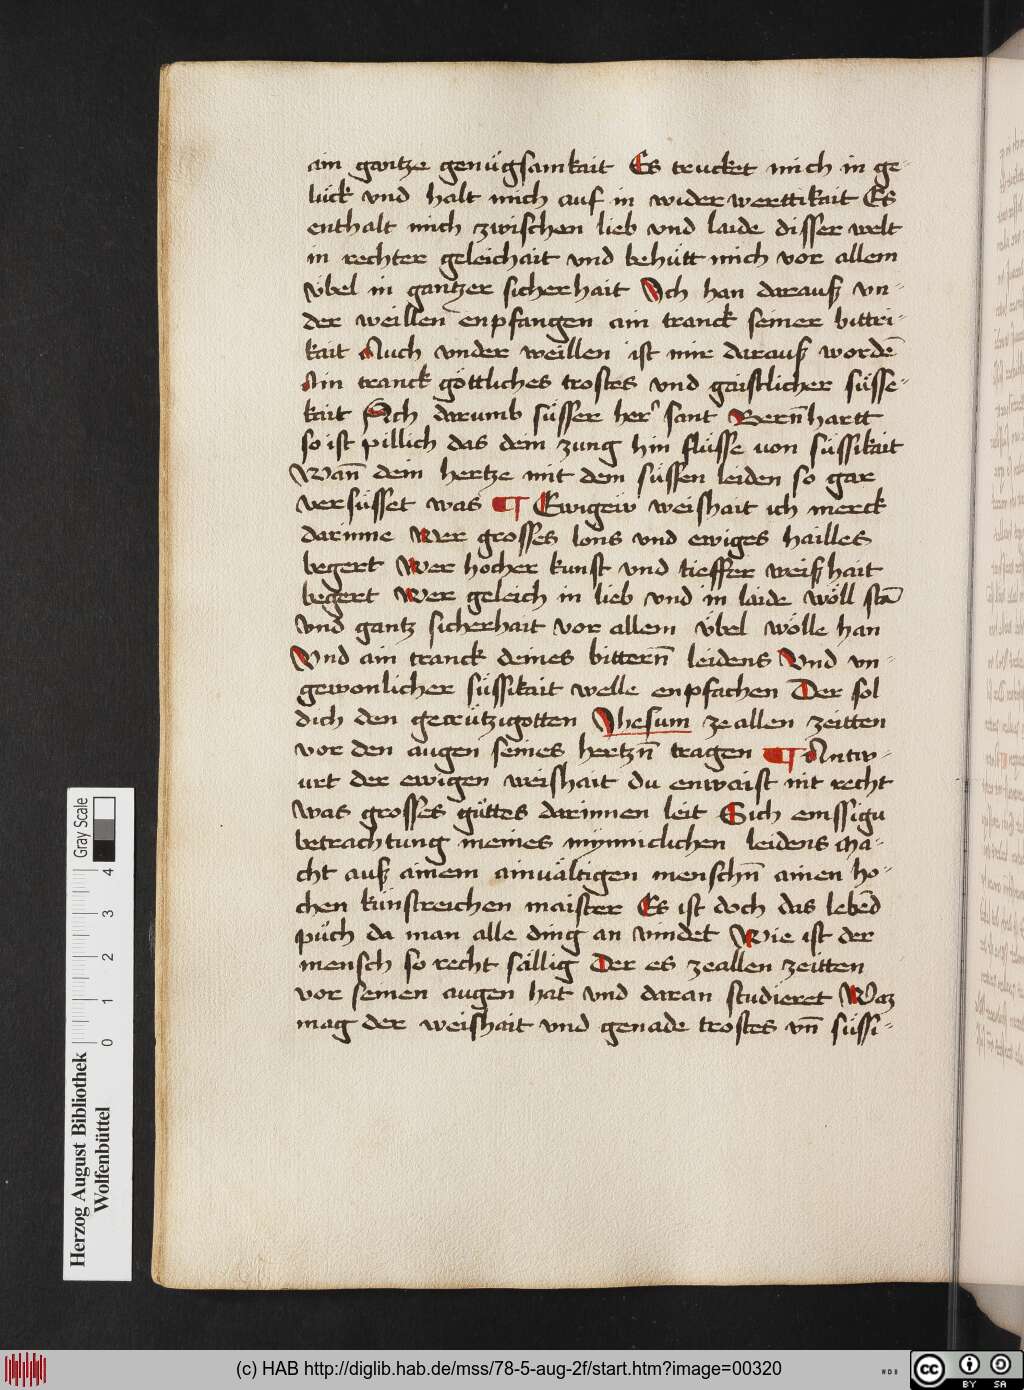 ain gantze genügsamkait Es trucket mich in ge-
lück vnd halt mich auf in widerwerttikait Es
enthalt mich zwischen lieb vnd laide disser welt
in rechter geleichait vnd behütt mich vor allem
übel in gantzer sicherhait Ich han darauß vn-
der weillen enpfangen ain tranck seiner bittri-
kait Auch vnder weillen ist mir darauß wordē
Ain tranck göttliches trostes vnd gaistlicher süsse-
kait Ach darumb süsser her sant Bern̄hartt
so ist pillich das dein zung hin flüsse von süssikait
Wan̄ dein hertze mit dem süssen leiden so gar
versüsset was ¶ Ewigew weishait ich merck
darinne Wer grosses lons vnd ewiges hailles
begert Wer hocher kunst vnd tieffer weißhait
begert Wer geleich in lieb vnd in laide wöll stā
vnd gantz sicherhait vor allem übel wölle han
Vnd ain tranck deines bittern̄ leidens Vnd vn-
gewonlicher süssikait welle enpfachen Der sol
dich den gecrützigotten Jhesum ze allen zeitten
vor den augen seines hertzn̄ tragen ¶ Antw-
urt der ewigen weishait du enwaist nit recht
was grosses güttes darinnen leit Sich emssigu
betrachtung meines mynniclichen leidens Ma-
cht auß ainem ainuältigen menschn̄ ainen ho-
chen künstreichen maister Es ist doch das lebēd
püch da man alle ding an vindet Wie ist der
mensch so recht sällig Der es ze allen zeitten
vor seinen augen hat vnd daran studieret Waz
mag der weishait vnd genade trostes vn̄ süssi-
Gray Scale
4
3
2
1
0
Herzog August Bibliothek
Wolfenbüttel
(c) HAB http://diglib.hab.de/mss/78-5-aug-2f/start.htm?image=00320
WDB
cc BY SA